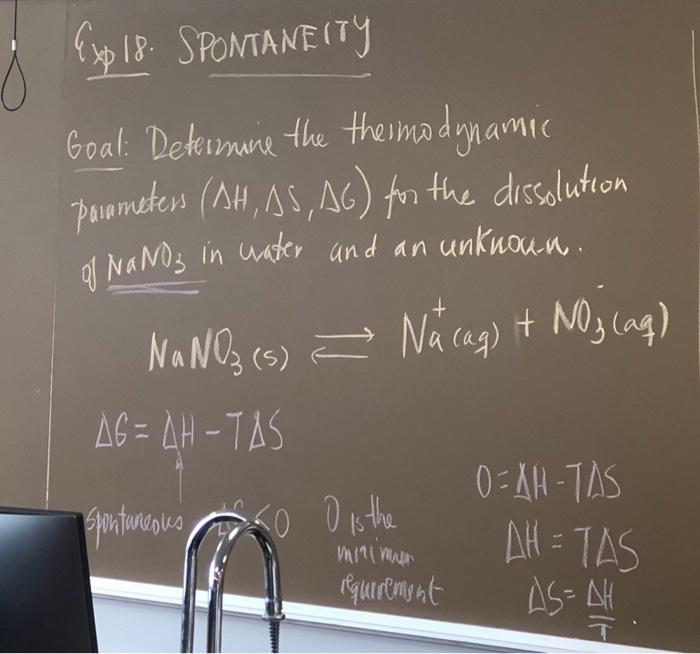 Exp 18. SPONTANEITY
Goal: Determine the thermodynamic
parameters (ΔH, ΔS, ΔG) for the dissolution
of NaNO₃ in water and an unknown.
NaNO₃(s) ⇌ Na⁺(aq) + NO₃⁻(aq)
ΔG = ΔH - TΔS
spontaneous ΔG < 0
0 is the
minimum
requirement
0 = ΔH - TΔS
ΔH = TΔS
ΔS = ΔH/T